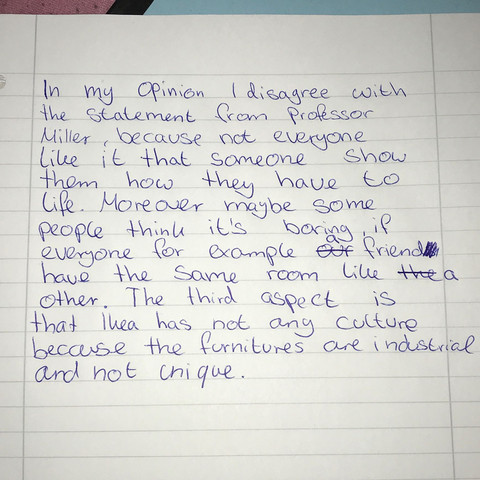 In my opinion I disagree with
the statement from Professor
Miller, because not everyone
like it that someone show
them how they have to
life. Moreover maybe some
people think it's boring, if
everyone for example a friend
have the same room like a
other. The third aspect is
that Ikea has not any culture
because the furnitures are industrial
and not unique.